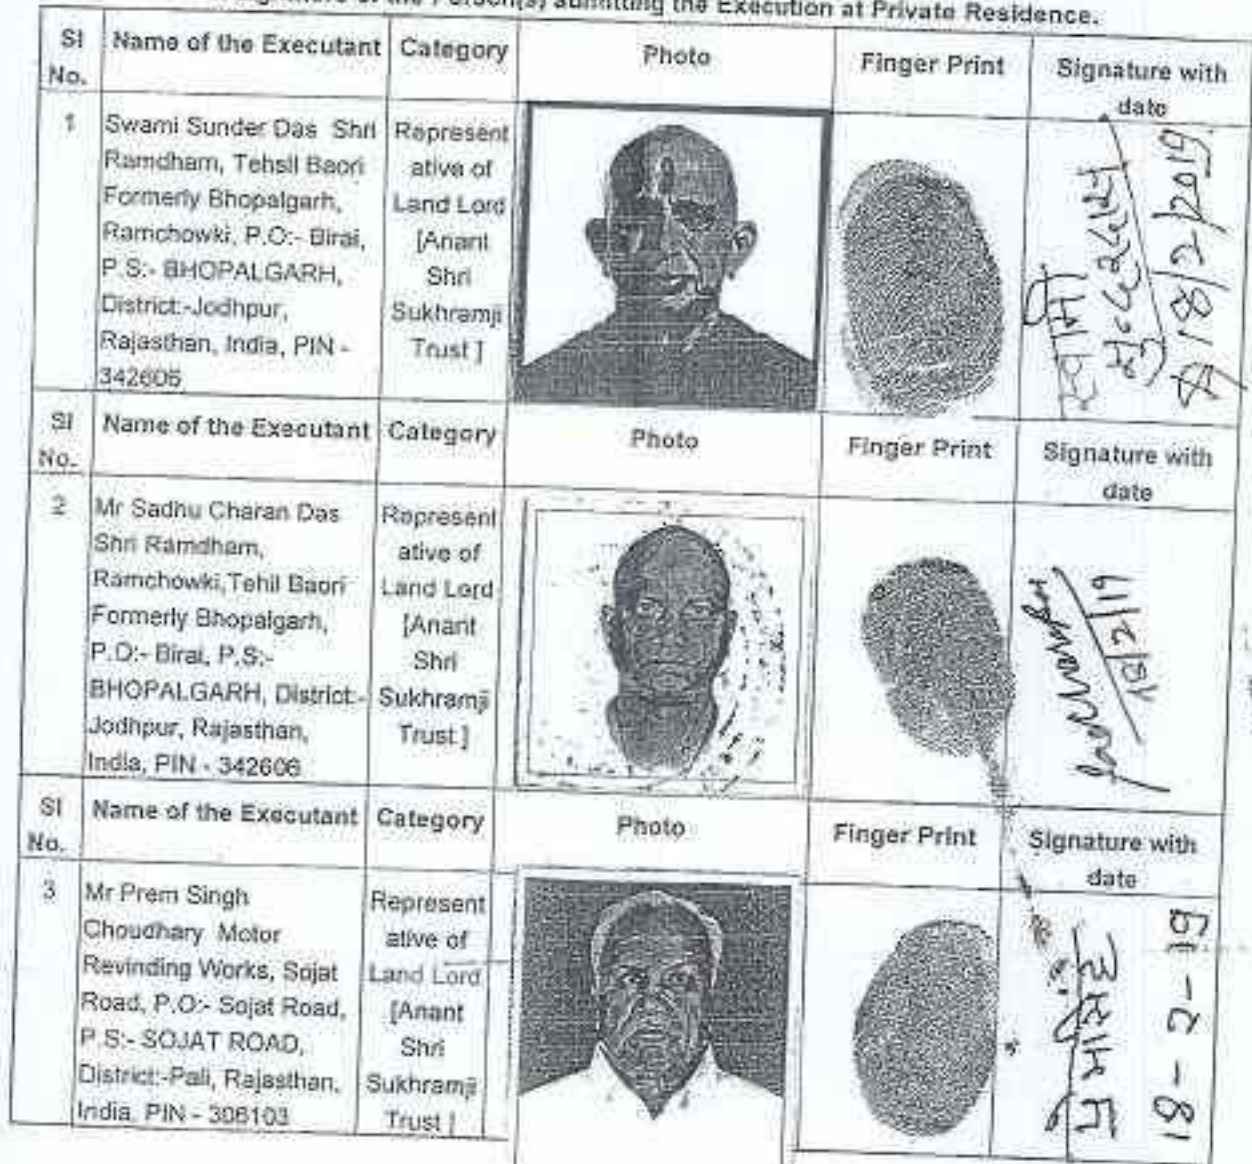 Signature of the Person(s) admitting the Execution at Private Residence.
Sl No. Name of the Executant Category Photo Finger Print Signature with date
1
Swami Sunder Das Shri
Ramdham, Tehsil Baori
Formerly Bhopalgarh,
Ramchowki, P.O:- Birai,
P.S:- BHOPALGARH,
District:-Jodhpur,
Rajasthan, India, PIN -
342606
Represent
ative of
Land Lord
[Anant
Shri
Sukhramji
Trust ]
स्वामी
सुन्दरदास
18/2/2019
Sl No. Name of the Executant Category Photo Finger Print Signature with date
2
Mr Sadhu Charan Das
Shri Ramdham,
Ramchowki,Tehil Baori
Formerly Bhopalgarh,
P.O:- Birai, P.S:-
BHOPALGARH, District:-
Jodhpur, Rajasthan,
India, PIN - 342606
Represent
ative of
Land Lord
[Anant
Shri
Sukhramji
Trust ]
18/2/19
Sl No. Name of the Executant Category Photo Finger Print Signature with date
3
Mr Prem Singh
Choudhary Motor
Revinding Works, Sojat
Road, P.O:- Sojat Road,
P.S:- SOJAT ROAD,
District:-Pali, Rajasthan,
India, PIN - 306103
Represent
ative of
Land Lord
[Anant
Shri
Sukhramji
Trust ]
18-2-19